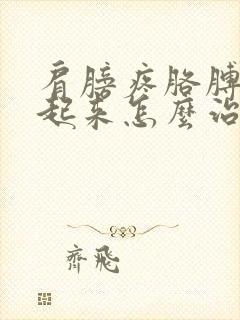 肩膀疼胳膊
起来怎麼治
齊飛